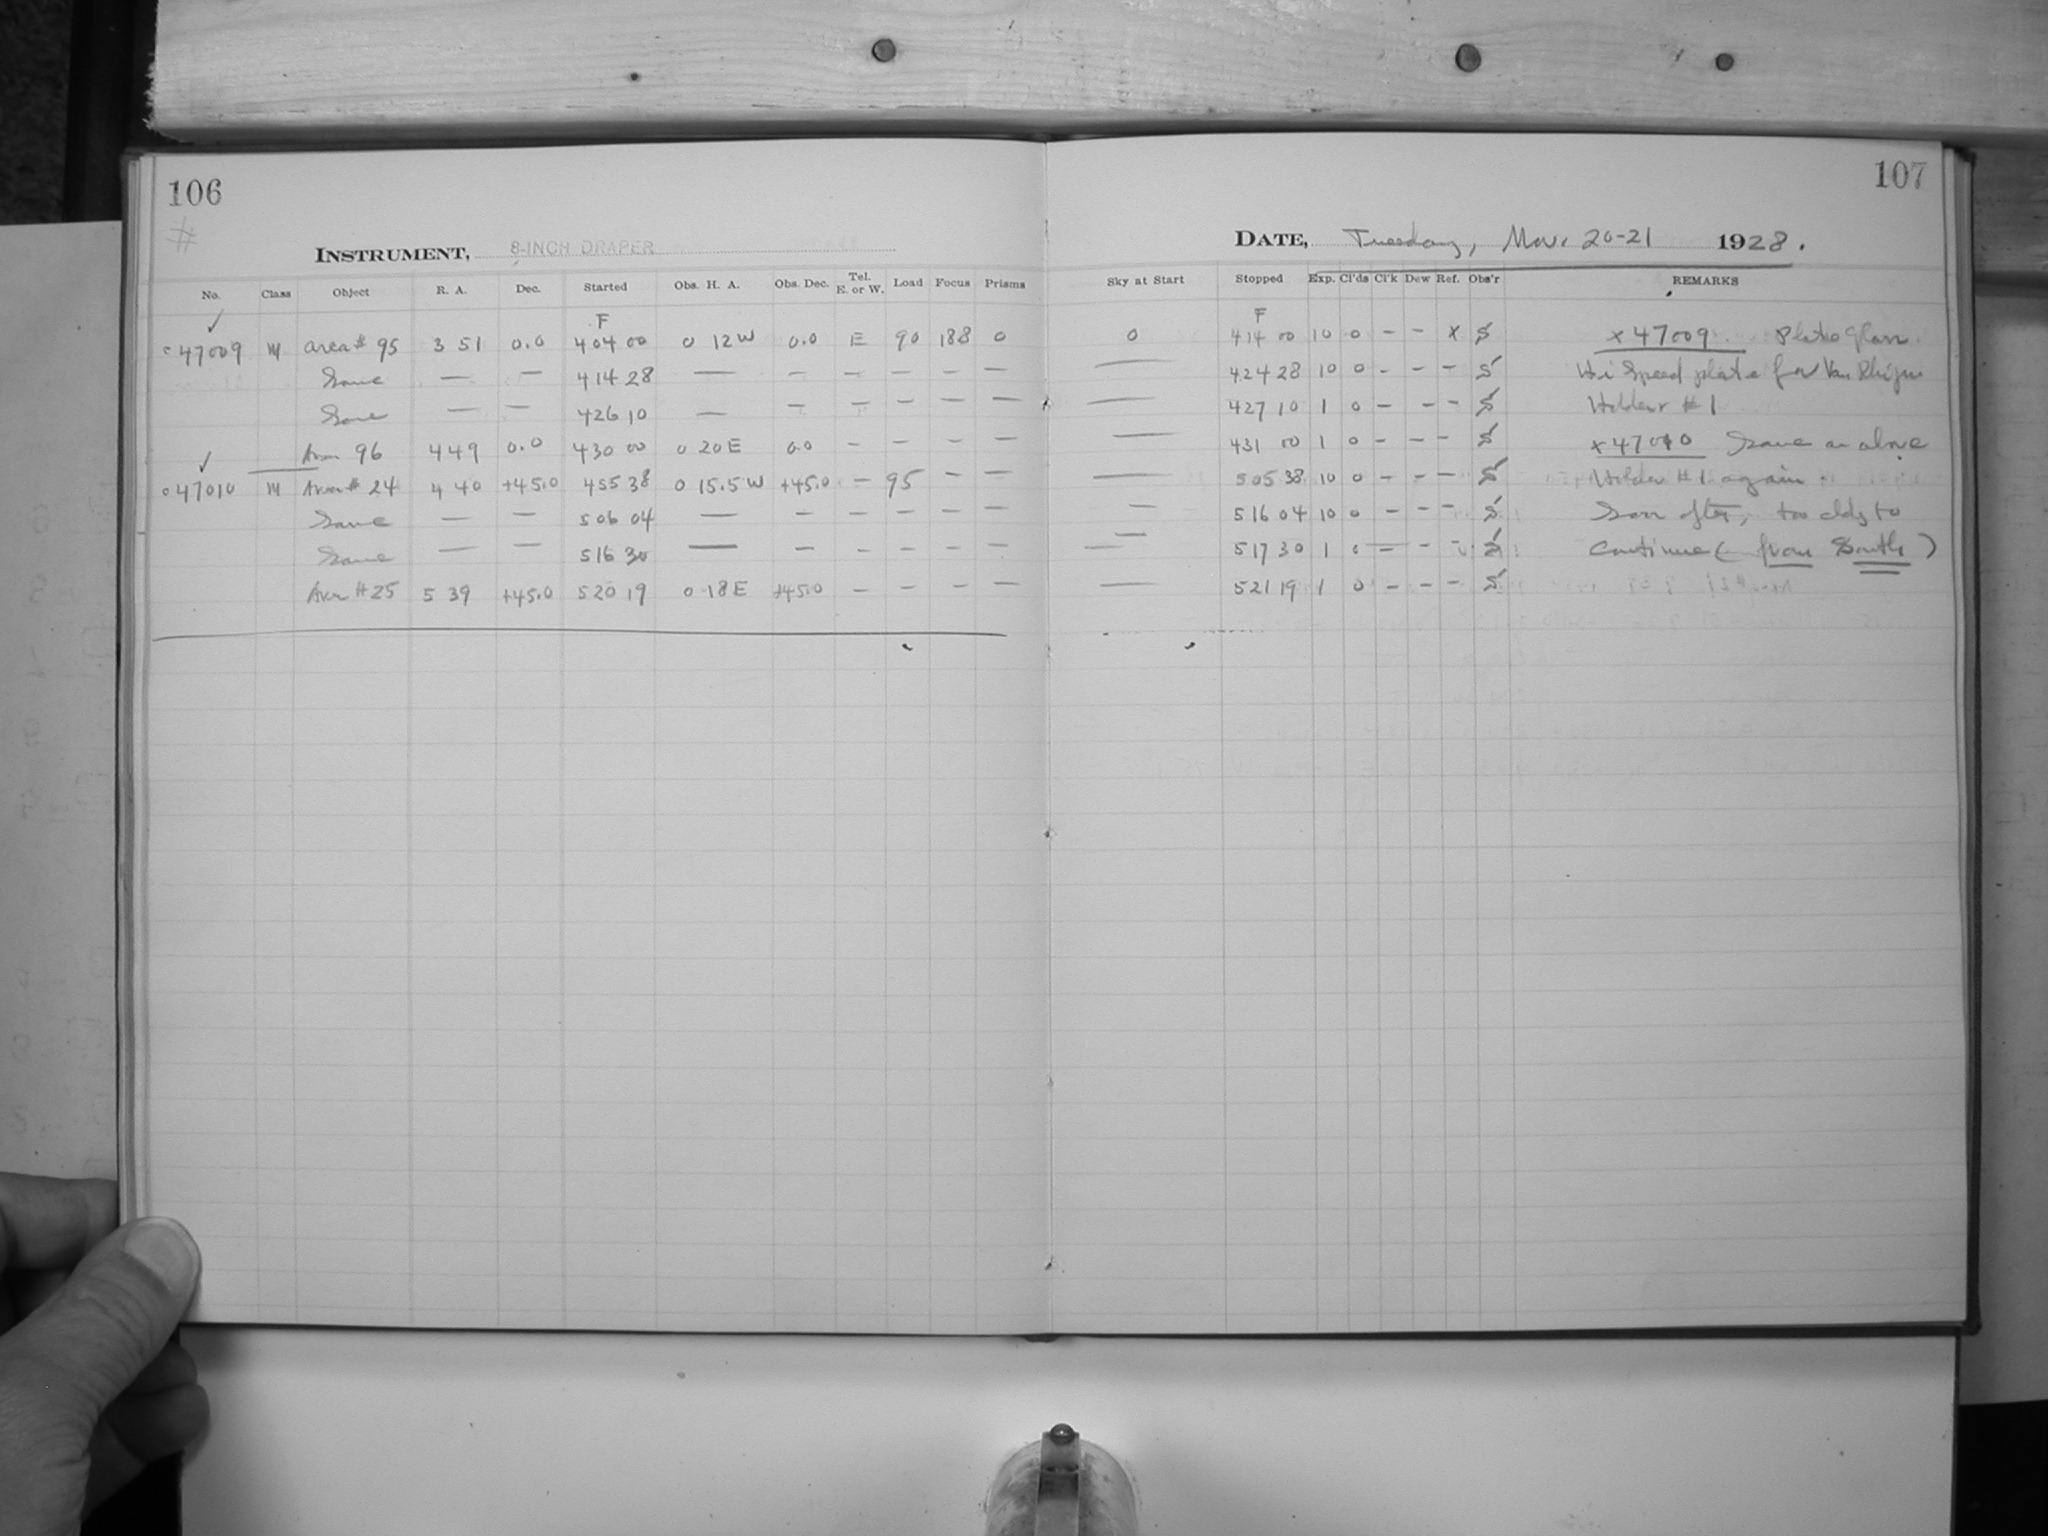 106
107
#
INSTRUMENT, 8-INCH DRAPER
DATE, Tuesday, Nov. 20-21 1928.
No. Class Object R. A. Dec. Started Obs. H. A. Obs. Dec. Tel. E. or W. Load Focus Prisms Sky at Start Stopped Exp. Cl'ds Cl'k Dew Ref. Obs'r REMARKS
✓ F F
47009 M area # 95 3 51 0.0 4 04 00 0 12 W 0.0 E 90 188 0 0 4 14 00 10 0 - - x S x 47009 Plate Glass.
Same — — 4 14 28 — — — — — — — 4 24 28 10 0 - - - S Hi Speed plate for Van Rhijn
Same — — 4 26 10 — — — — — — — 4 27 10 1 0 - - - S Holder # 1
Area 96 4 49 0.0 4 30 00 0 20 E 0.0 — — — — — 4 31 00 1 0 - - - S x 47010 Same as above
✓
47010 M Area # 24 4 40 +45.0 4 55 38 0 15.5 W +45.0 — 95 — — — 5 05 38 10 0 - - - S Holder # 1 again.
Same — — 5 06 04 — — — — — — — 5 16 04 10 0 - - - S Soon after, too cldy to
Same — — 5 16 30 — — — — — — — 5 17 30 1 0 - - - S Continue (— from South)
Area # 25 5 39 +45.0 5 20 19 0 18 E +45.0 — — — — — 5 21 19 1 0 - - - S